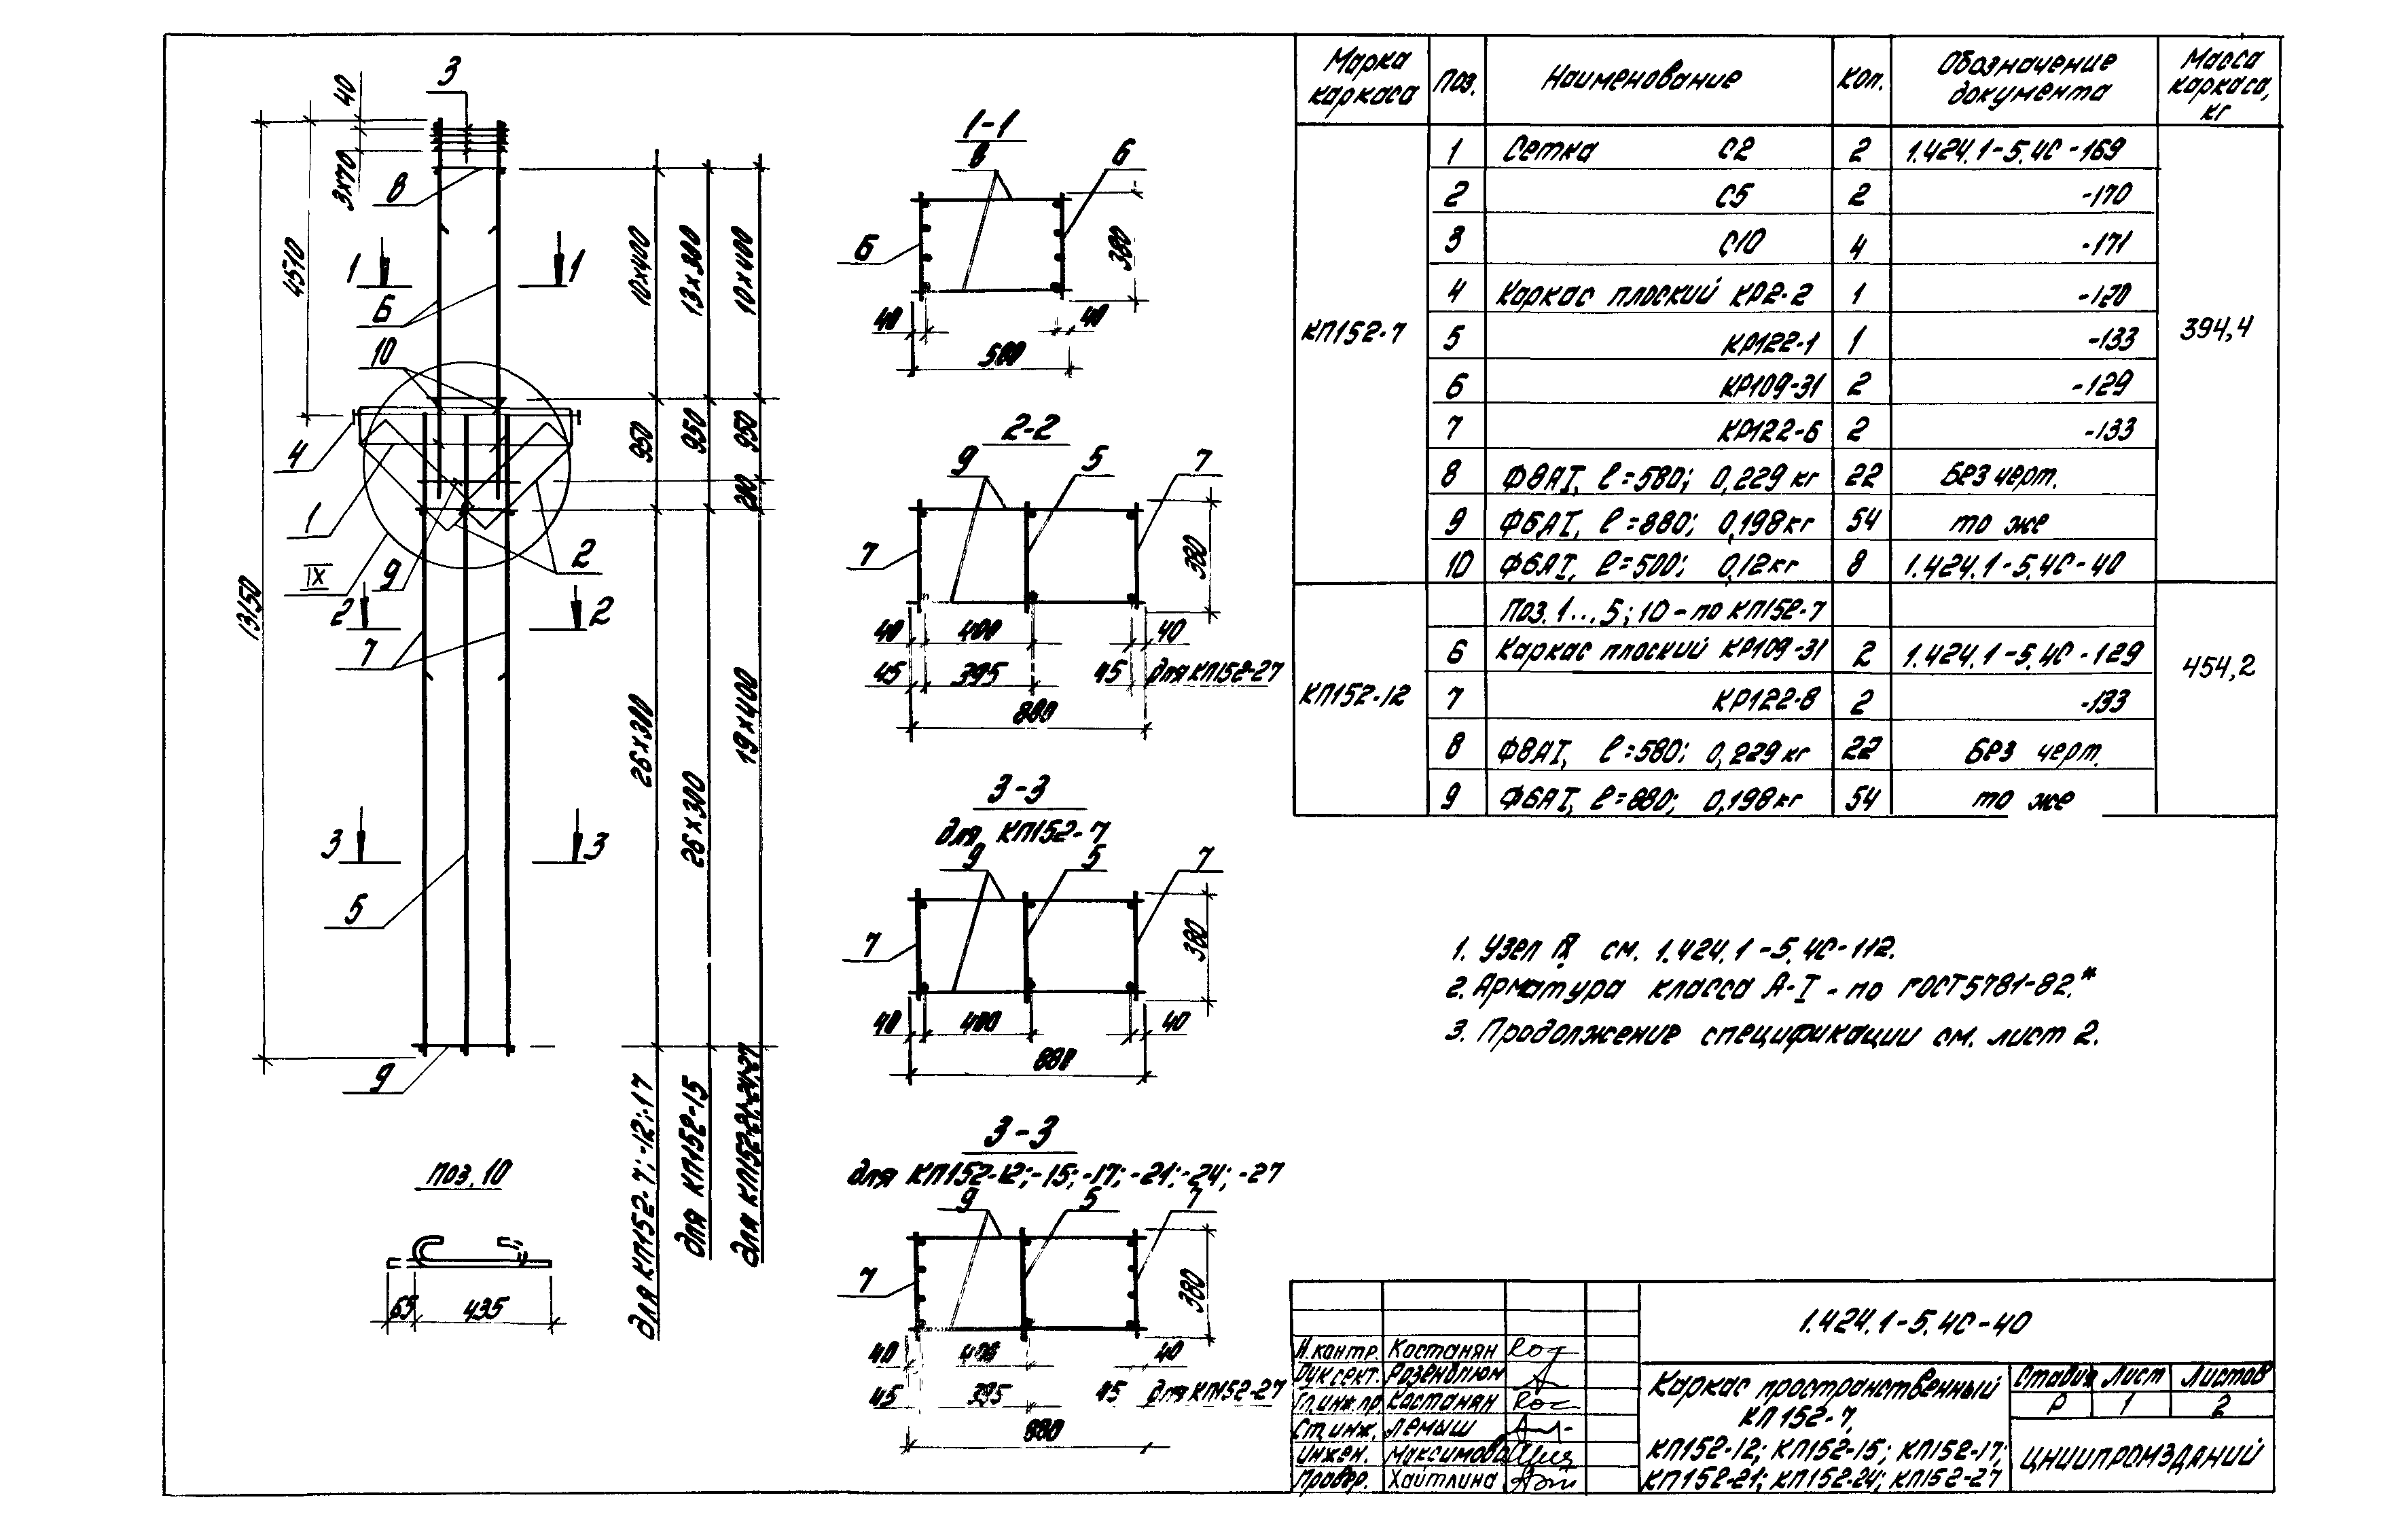 3
40
3×70
8
4510
1
1
6
10
4
1
IX
9
2
13150
2
2
7
3
3
5
9
10×400
13×300
10×400
950
950
950
26×300
26×300
19×400
для КП152-7; -12; -17
для КП152-15
поз. 10
65
435
1-1
8
6
6
380
40
40
580
2-2
9
5
7
7
380
40
400
40
45
395
45
для КП152-27
880
3-3
для КП152-7
9
5
7
7
380
40
400
40
880
3-3
для КП152-12; -15; -17; -21; -24; -27
9
5
7
7
380
40
400
40
45
395
45
для КП152-27
880
Марка каркаса
Поз.
Наименование
Кол.
Обозначение документа
Масса каркаса, кг
КП152-7
394,4
1 Сетка С2 2 1.424.1-5.4С-169
2 С5 2 -170
3 С10 4 -171
4 Каркас плоский КР2-2 1 -120
5 КР122-1 1 -133
6 КР109-31 2 -129
7 КР122-6 2 -133
8 Ф8АI, ℓ=580; 0,229 кг 22 Без черт.
9 Ф6АI, ℓ=880; 0,198 кг 54 то же
10 Ф6АI, ℓ=500; 0,12 кг 8 1.424.1-5.4С-40
КП152-12
454,2
Поз. 1...5; 10 - по КП152-7
6 Каркас плоский КР109-31 2 1.424.1-5.4С-129
7 КР122-8 2 -133
8 Ф8АI, ℓ=580; 0,229 кг 22 Без черт.
9 Ф6АI, ℓ=880; 0,198 кг 54 то же
1. Узел IX см. 1.424.1-5.4С-112.
2. Арматура класса А-I - по ГОСТ 5781-82.*
3. Продолжение спецификации см. лист 2.
1.424.1-5.4С-40
Н.контр. Костанян
Рук.сект. Розенблюм
Гл.инж.пр. Костанян
Ст.инж. Лемыш
Инжен. Максимова
Провер. Хайтлина
Каркас пространственный
КП152-7,
КП152-12; КП152-15; КП152-17;
КП152-21; КП152-24; КП152-27
Стадия Лист Листов
Р 1 2
ЦНИИПРОМЗДАНИЙ